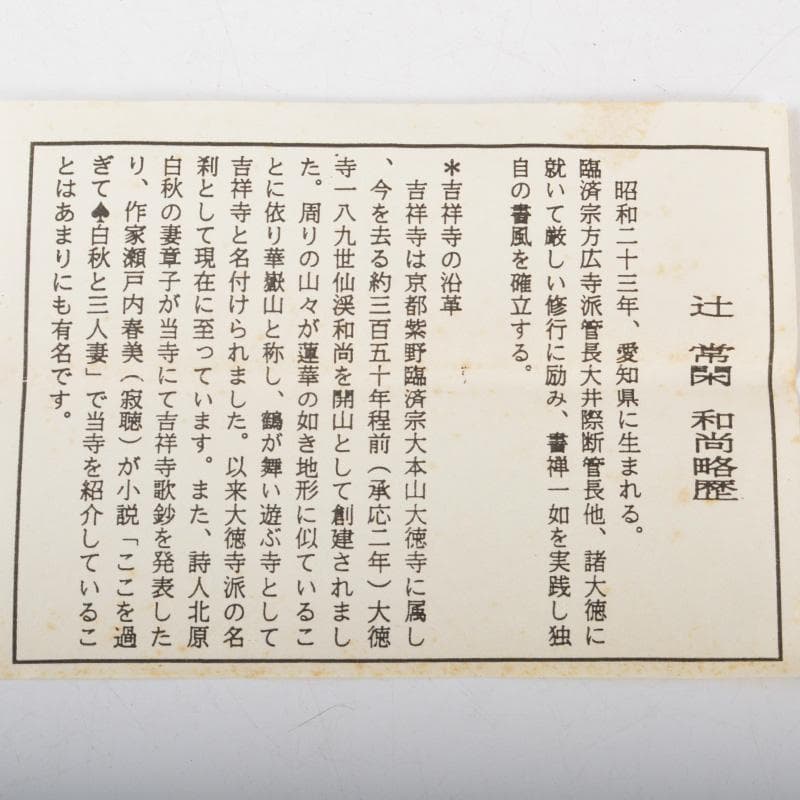 辻　常閑　和尚略歴
昭和二十三年、愛知県に生まれる。
臨済宗方広寺派管長大井際断管長他、諸大徳に
就いて厳しい修行に励み、書禅一如を実践し独
自の書風を確立する。
＊吉祥寺の沿革
吉祥寺は京都紫野臨済宗大本山大徳寺に属し
、今を去る約三百五十年程前（承応二年）大徳
寺一八九世仙渓和尚を開山として創建されまし
た。周りの山々が蓮華の如き地形に似ているこ
とに依り華嶽山と称し、鶴が舞い遊ぶ寺として
吉祥寺と名付けられました。以来大徳寺派の名
刹として現在に至っています。また、詩人北原
白秋の妻章子が当寺にて吉祥寺歌鈔を発表した
り、作家瀬戸内春美（寂聴）が小説「ここを過
ぎて♠白秋と三人妻」で当寺を紹介しているこ
とはあまりにも有名です。